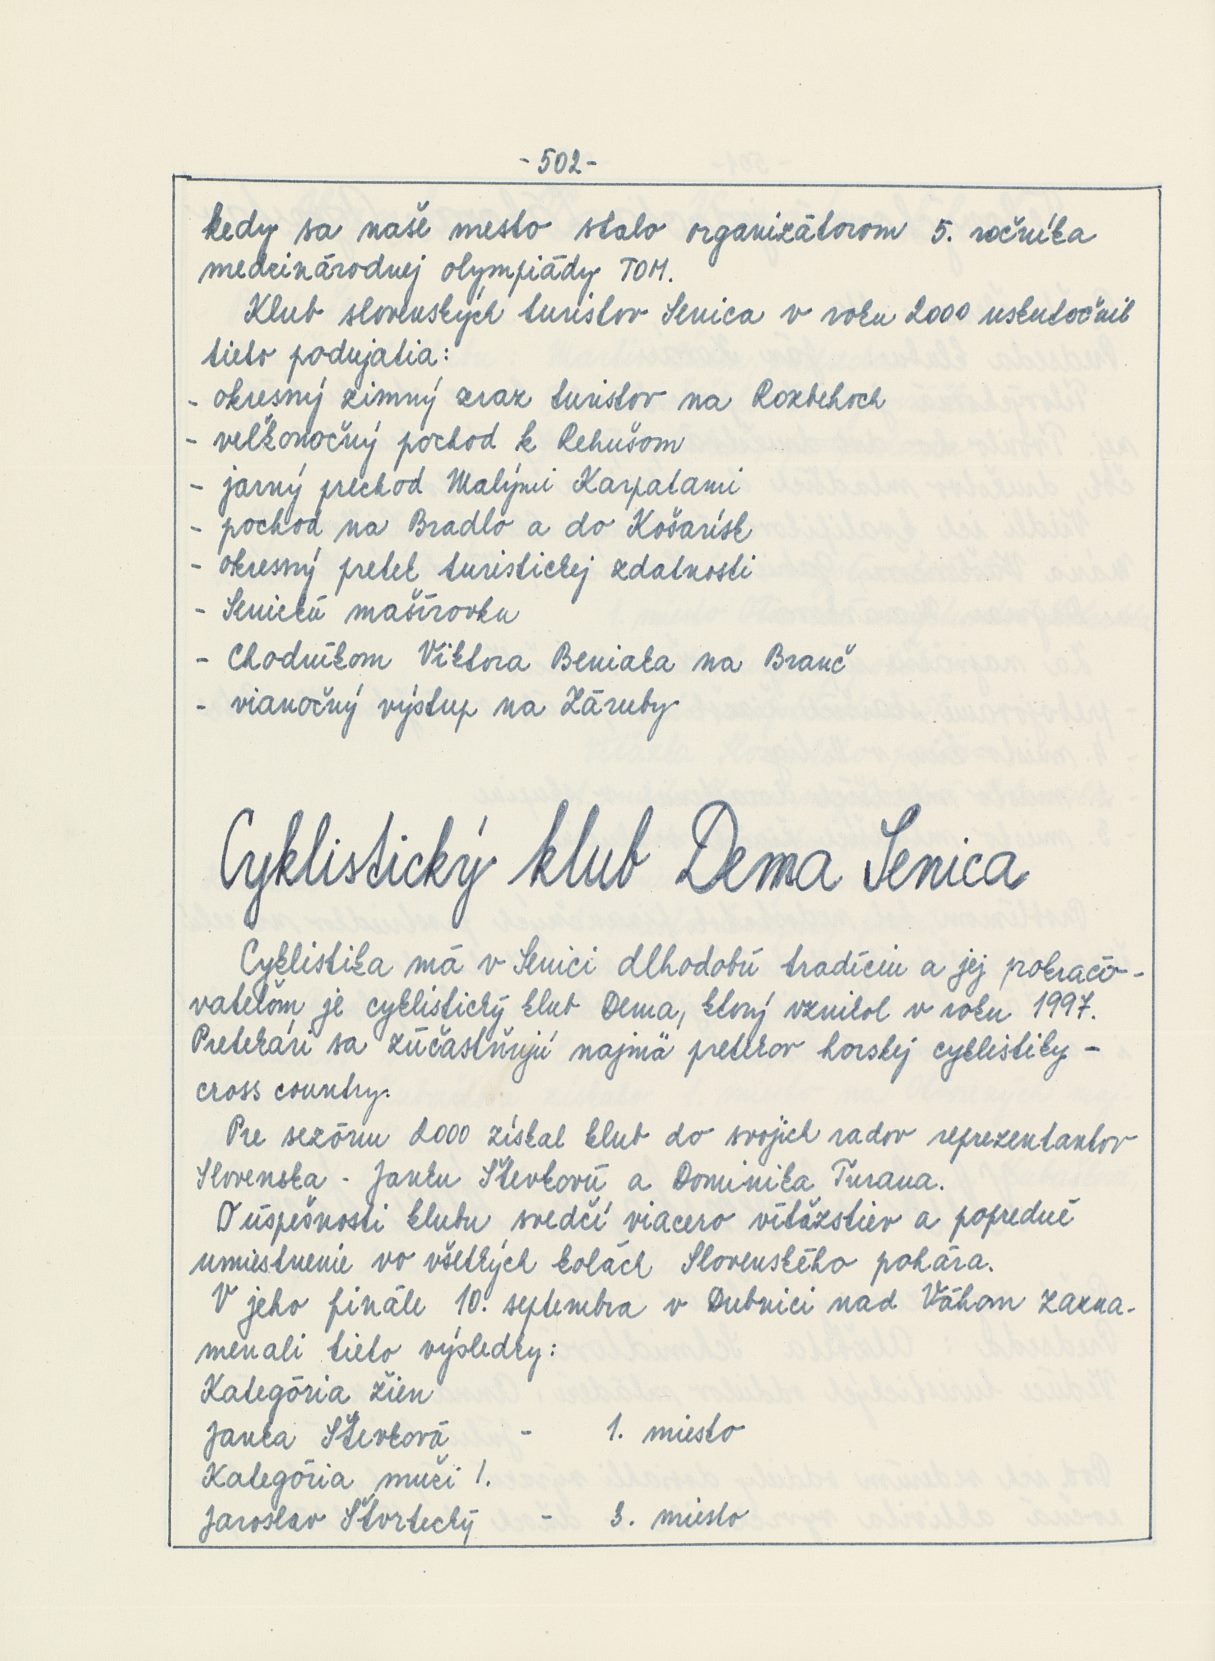 - 502 -
kedy sa naše mesto stalo organizátorom 5. ročníka
medzinárodnej olympiády TOM.
Klub slovenských turistov Senica v roku 2000 uskutočnil
tieto podujatia:
- okresný zimný zraz turistov na Rozbehoch
- veľkonočný pochod k Rehušom
- jarný prechod Malými Karpatami
- pochod na Bradlo a do Košarísk
- okresný pretek turistickej zdatnosti
- Senickú mašírovku
- Chodníkom Viktora Beniaka na Branč
- vianočný výstup na Záruby
Cyklistický klub Dema Senica
Cyklistika má v Senici dlhodobú tradíciu a jej pokračo-
vateľom je cyklistický klub Dema, ktorý vznikol v roku 1997.
Pretekári sa zúčastňujú najmä pretekov horskej cyklistiky -
cross country.
Pre sezónu 2000 získal klub do svojich radov reprezentantov
Slovenska - Janku Števkovú a Dominika Turana.
O úspešnosti klubu svedčí viacero víťazstiev a popredné
umiestnenie vo všetkých kolách Slovenského pohára.
V jeho finále 10. septembra v Dubnici nad Váhom zazna-
menali tieto výsledky:
Kategória žien
Janka Števková - 1. miesto
Kategória muži 1.
Jaroslav Štvrtecký - 3. miesto